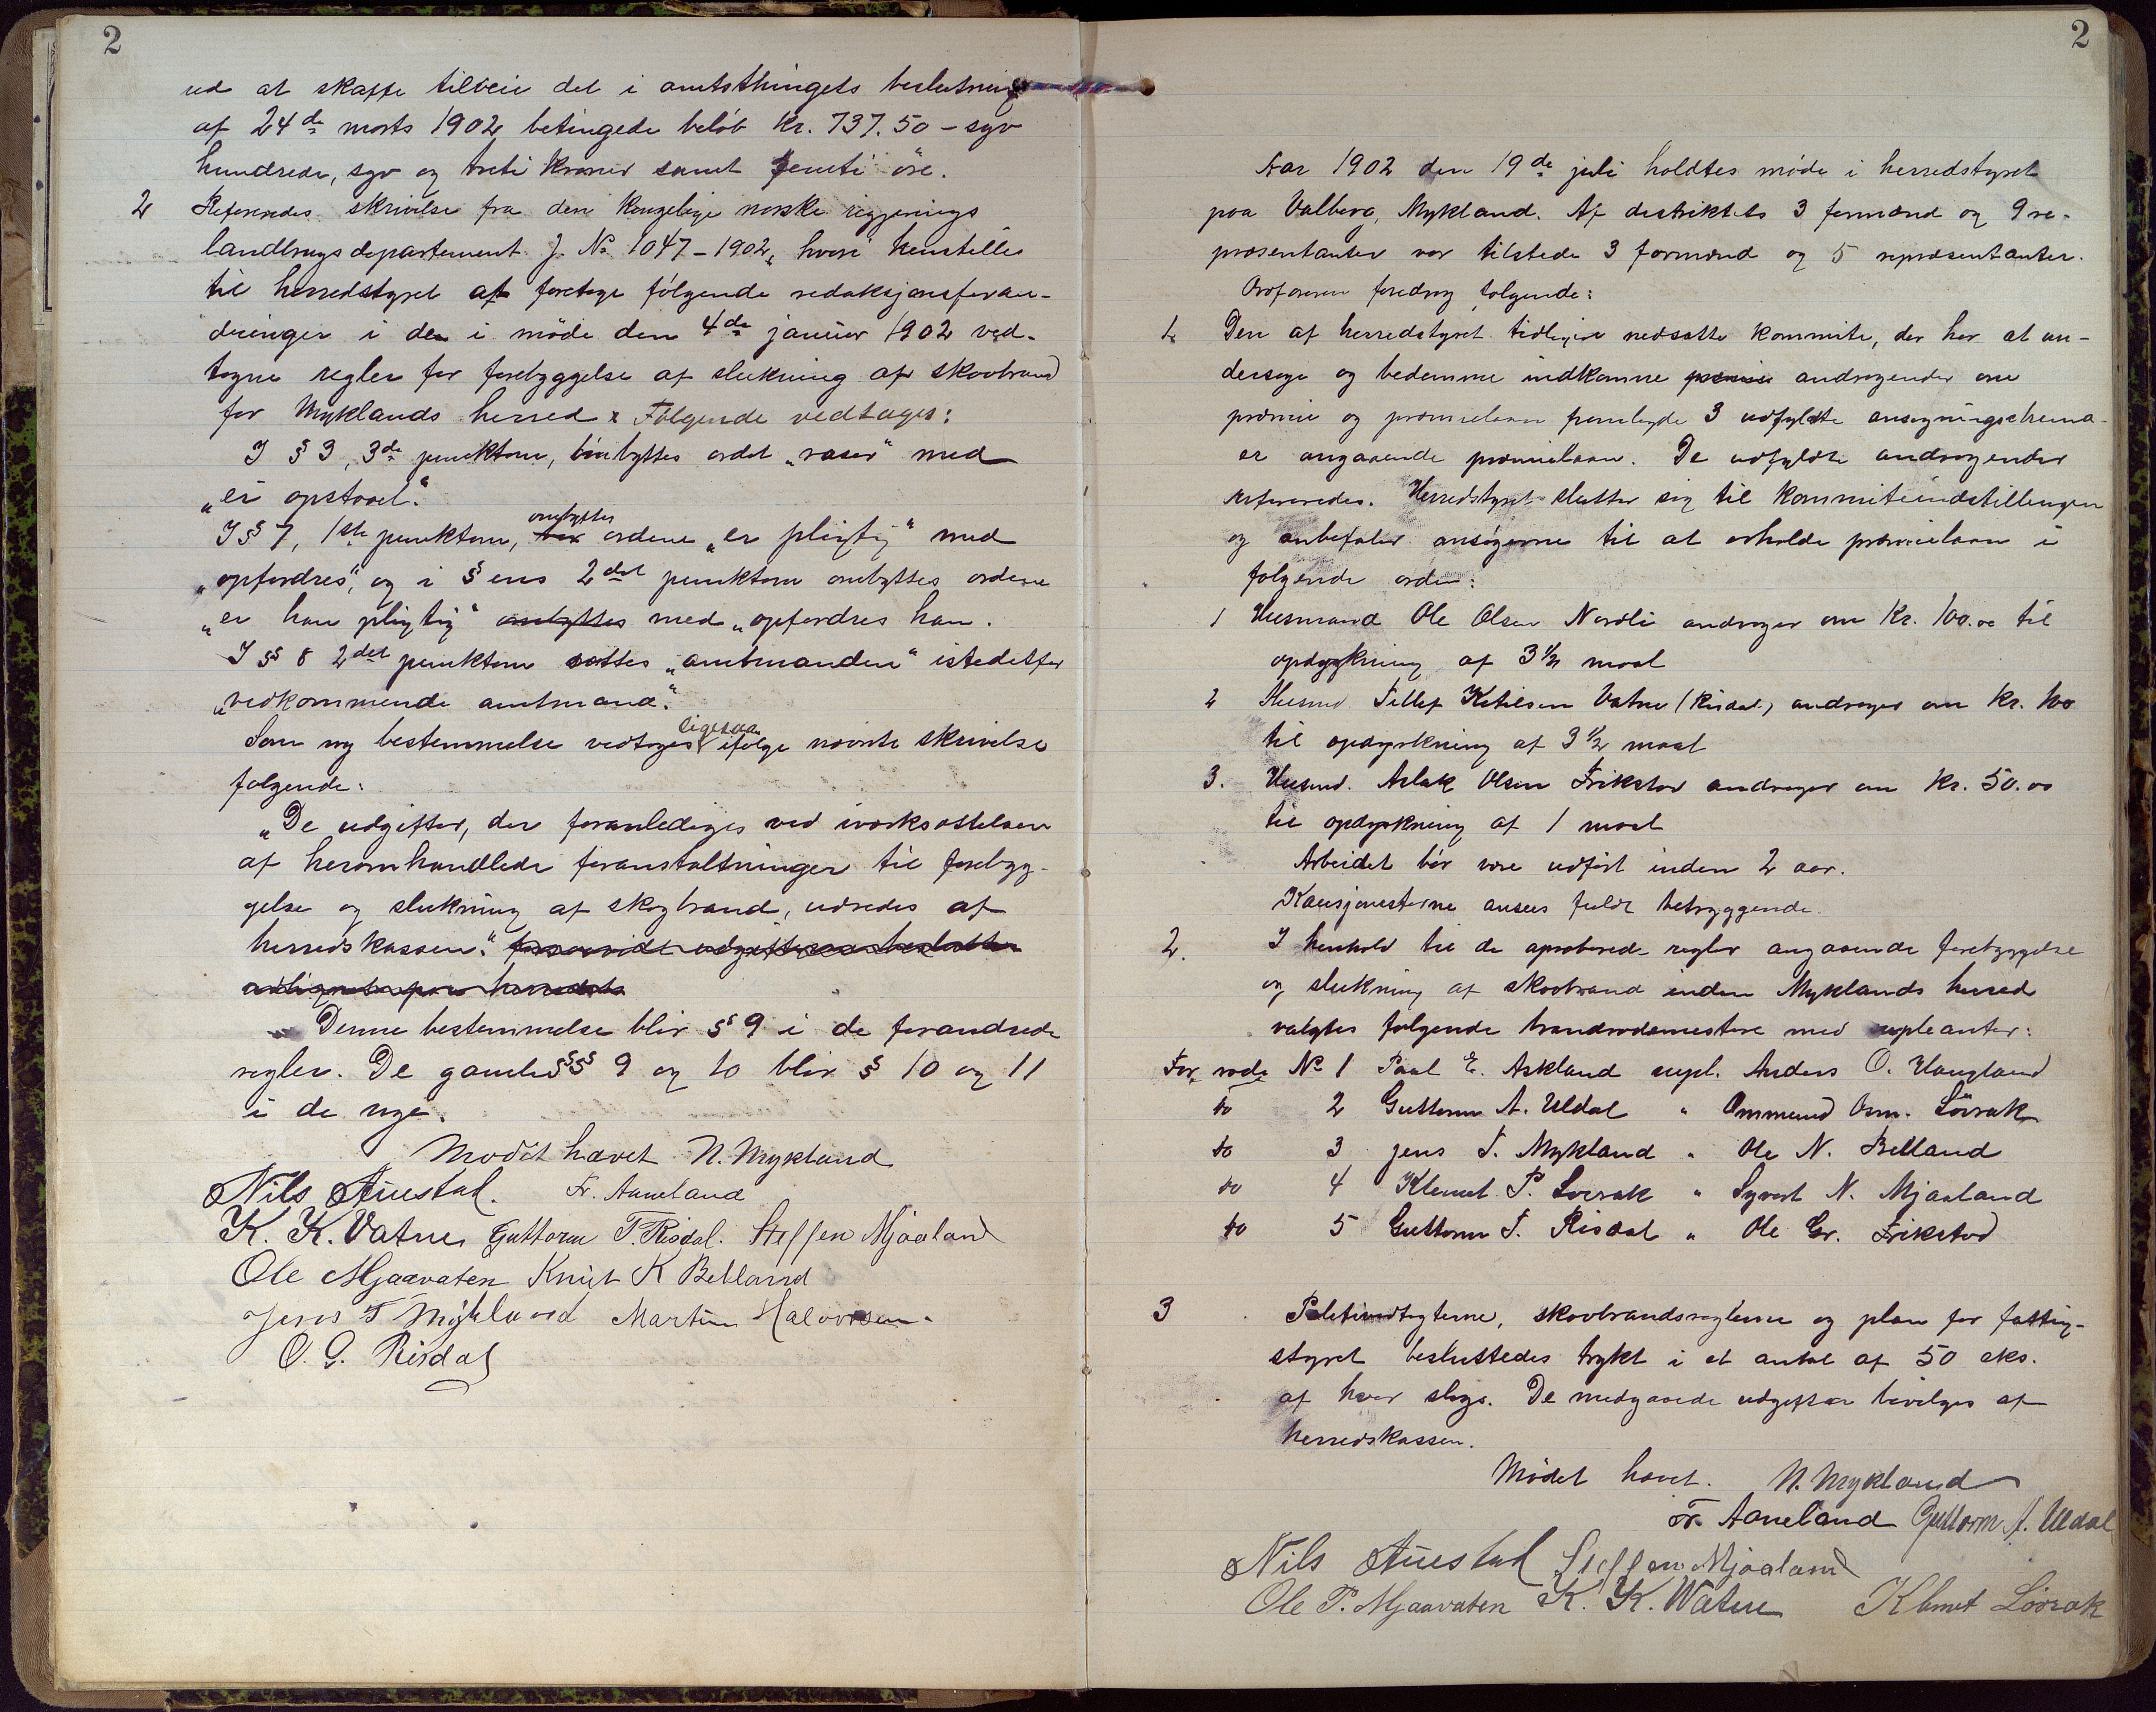 2
ud at skaffe tilveie det i amtsthingets beslutning
af 24de marts 1902 betingede beløb kr. 737.50 – syv
hundrede, syv og treti kroner samt femti øre.
2 Refereredes skrivelse fra den kongelige norske regjerings
landbrugsdepartement J. No 1047 – 1902, hvori henstilles
til herredstyret at foretage følgende redaksjonsforan-
dringer i de i møde den 4de januar 1902 ved-
tagne regler for forebyggelse af slukning af skovbrand
for Myklands herred. Følgende vedtages:
I § 3, 3de punktum, ombyttes ordet „raser" med
„er opstaaet".
I § 7, 1ste punktum, ombyttes ordene „er pligtig" med
„opfordres", og i §ens 2det punktum ombyttes ordene
„er han pligtig" ombyttes med „opfordres han.
I §§ 8 2det punktum sættes „amtmanden" istedetfor
„vedkommende amtmand".
Som ny bestemmelse vedtages ligesaa ifølge nævnte skrivelse
følgende:
„De udgifter, der foranlediges ved iværksættelsen
af heromhandlede foranstaltninger til forebyg-
gelse og slukning af skogbrand, udredes af
herredskassen."
Denne bestemmelse blir § 9 i de forandrede
regler. De gamle §§§ 9 og 10 blir § 10 og 11
i de nye.
Mødet hævet N. Mykland
Nils Austad. Fr. Aaneland
K. K. Vatne Guttorm T. Risdal. Steffen Mjaaland
Ole Mjaavaten Knut K Belland
Jens T Mykland Martin Halvorsen.
O. G. Risdal
2
Aar 1902 den 19de juli holdtes møde i herredstyret
paa Valberg, Mykland. Af distriktets 3 formænd og 9 re-
præsentanter var tilstede 3 formænd og 5 repræsentanter.
Ordføreren foredrog følgende:
1. Den af herredstyret tidligere nedsatte kommite, der har at un-
dersøge og bedømme indkomne præmie andragender om
præmie og præmielaan fremlagde 3 udfyldte ansøgningschema-
er angaaende præmielaan. De udfyldte andragender
refereredes. Herredstyret slutter sig til kommiteindstillingen
og anbefaler ansøgerne til at erholde præmielaan i
følgende orden:
1 Husmand Ole Olsen Nordli andrager om Kr. 100.00 til
opdyrkning af 3 1/2 maal
2 Husmd. Tellef Ketilsen Vatne (Risdal) andrager om kr. 100
til opdyrkning af 3 1/2 maal
3. Husmd. Aslak Olsen Frikstad andrager om kr. 50.00
til opdyrkning af 1 maal
Arbeidet bør være udført inden 2 aar.
Kausjonisterne ansees fuldt betryggende.
2. I henhold til de aproberede regler angaaende forebyggelse
og slukning af skovbrand inden Myklands herred
valgtes følgende brandrodemestere med supleanter:
For rode No 1 Paul E. Askland supl. Anders O. Haugland
do 2 Guttorm A. Uldal " Ommund Osm. Løvrak
do 3 Jens T. Mykland " Ole N. Belland
do 4 Klemet P. Løvrak " Syvert N. Mjaaland
do 5 Guttorm T. Risdal " Ole Gr. Frikstad
3 Politivedtægterne, skovbrandsreglerne og plan for fattig-
styret besluttedes trykt i et antal af 50 eks.
af hver slags. De medgaaede udgifter bevilges af
herredskassen.
Mødet hævet. N. Mykland
Fr. Aaneland Guttorm A. Uldal
Nils Austad Steffen Mjaaland
Ole P. Mjaavaten K. K. Watne Klemet Løvrak